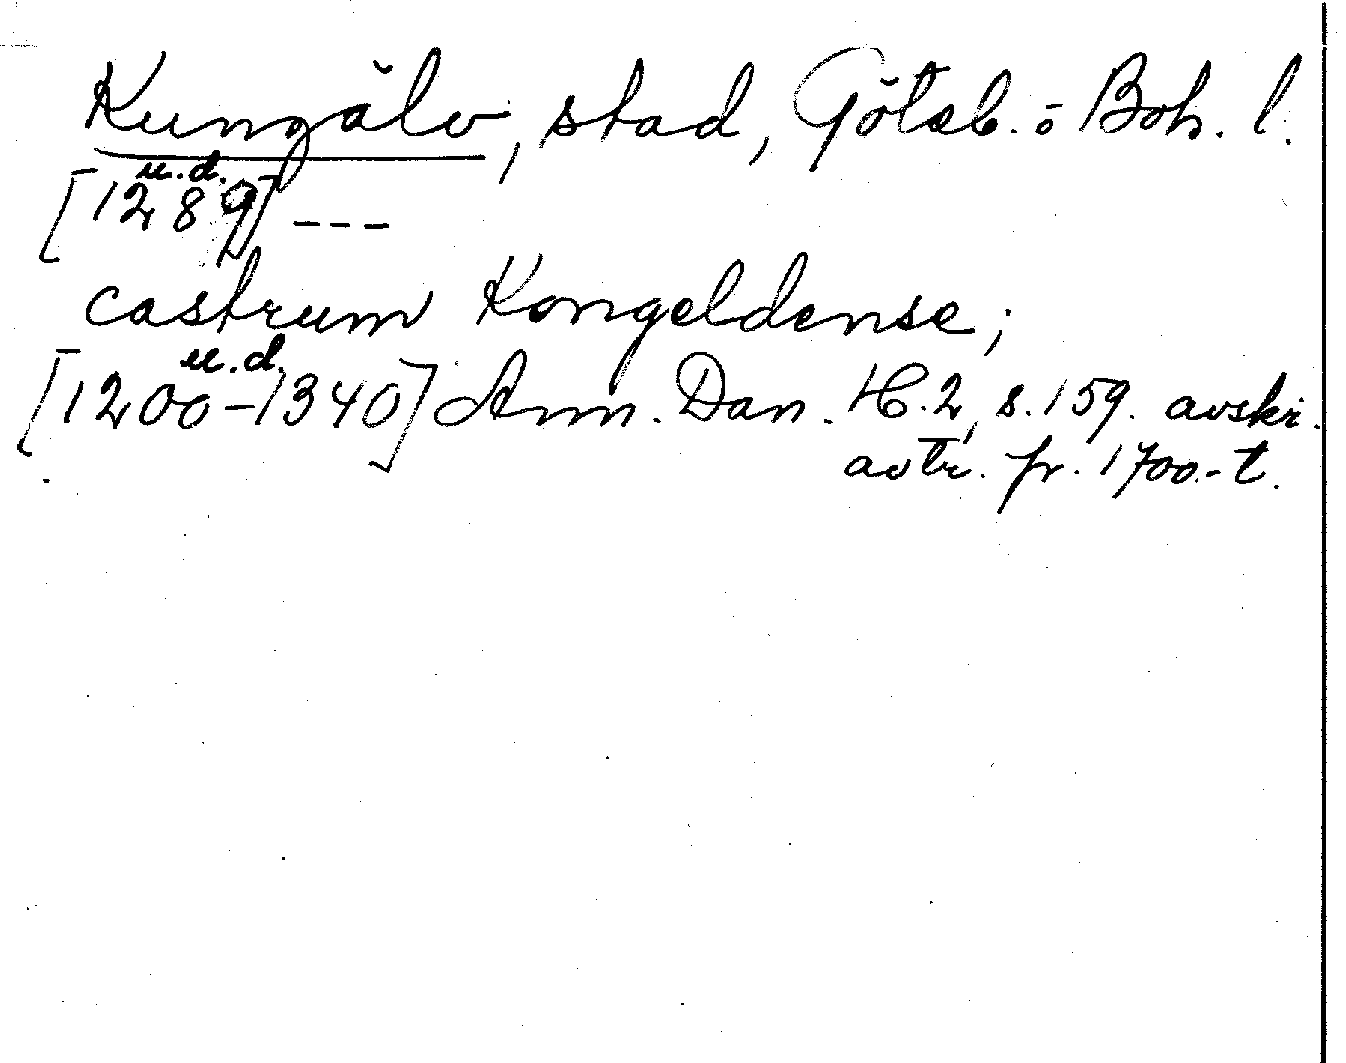 Kungälv, stad, Göteb. o Boh. l.
u.d.
[1289] ---
castrum Kongeldense;
u.d.
[1200-1340] Ann. Dan. H.2, s.159. avskr.
avtr. fr. 1700-t.